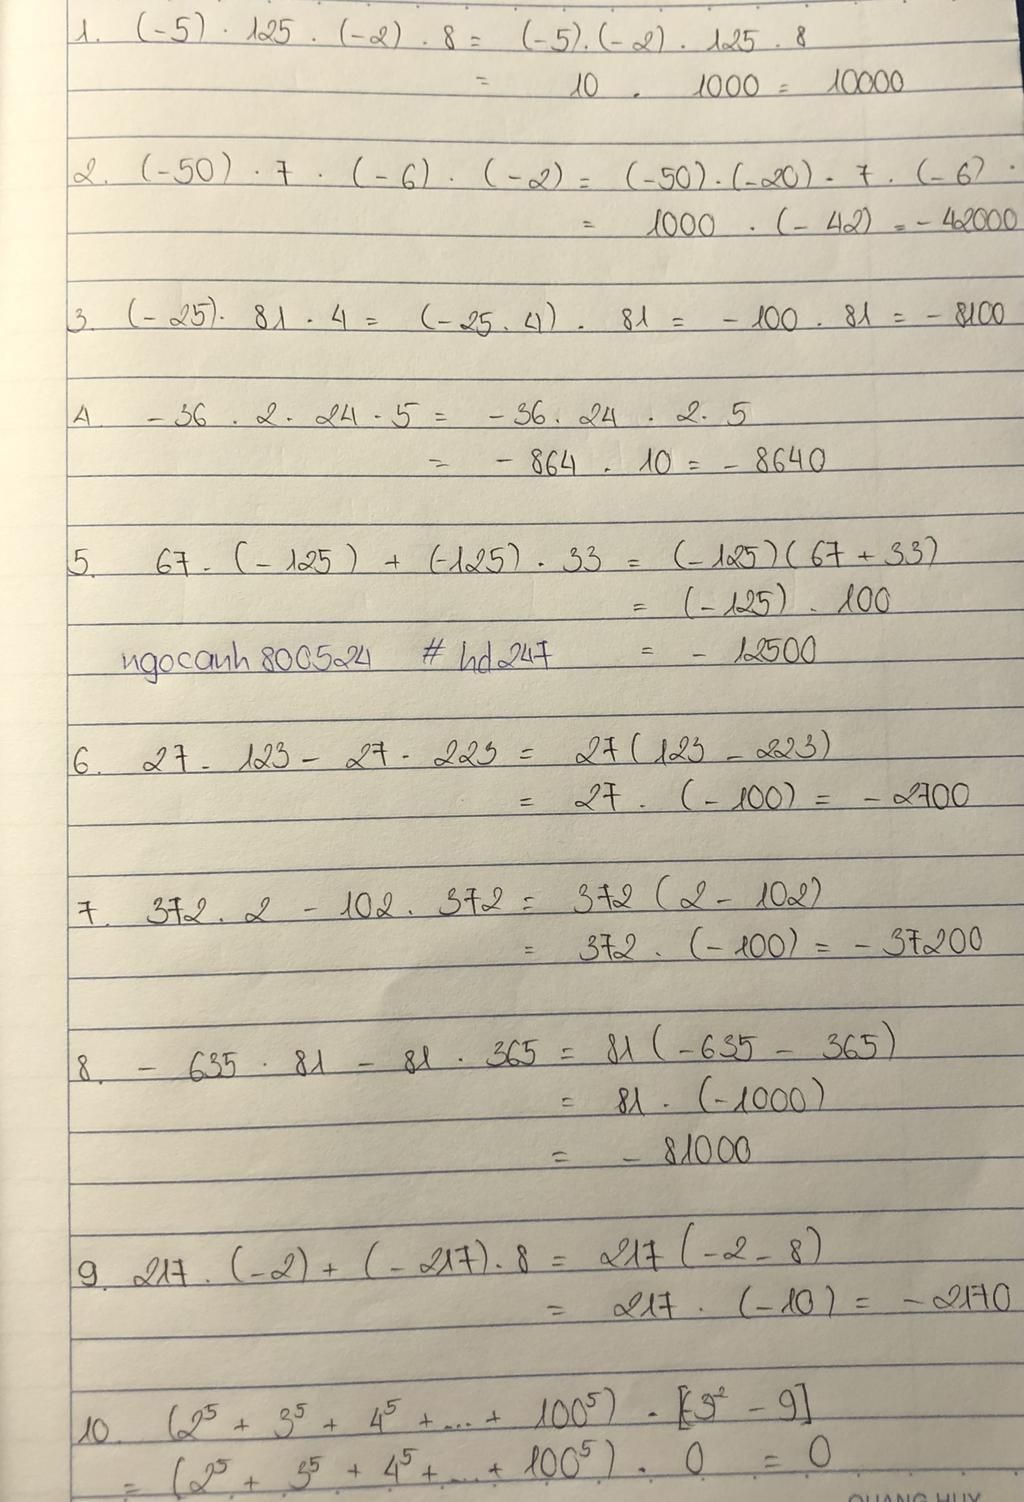 1. (-5) . 125 . (-2) . 8 = (-5).(-2) . 125 . 8
= 10 . 1000 = 10000
2. (-50) . 7 . (-6) . (-2) = (-50).(-20) . 7 . (-6) .
= 1000 . (-42) = -42000
3. (-25). 81 . 4 = (-25.4) . 81 = -100 . 81 = -8100
4. -36 . 2 . 24 . 5 = -36. 24 . 2. 5
= -864 . 10 = -8640
5. 67 . (-125) + (-125) . 33 = (-125)(67 + 33)
= (-125) . 100
ngocanh800524 #hd247 = -12500
6. 27 . 123 - 27 . 223 = 27(123 - 223)
= 27 . (-100) = -2700
7. 372. 2 - 102. 372 = 372 (2 - 102)
= 372 . (-100) = -37200
8. - 635 . 81 - 81 . 365 = 81(-635 - 365)
= 81 . (-1000)
= -81000
9. 217 . (-2) + (-217). 8 = 217(-2 - 8)
= 217 . (-10) = -2170
10. (2⁵ + 3⁵ + 4⁵ + ... + 100⁵) . [3² - 9]
= (2⁵ + 3⁵ + 4⁵ + ... + 100⁵) . 0 = 0
QUANG HUY